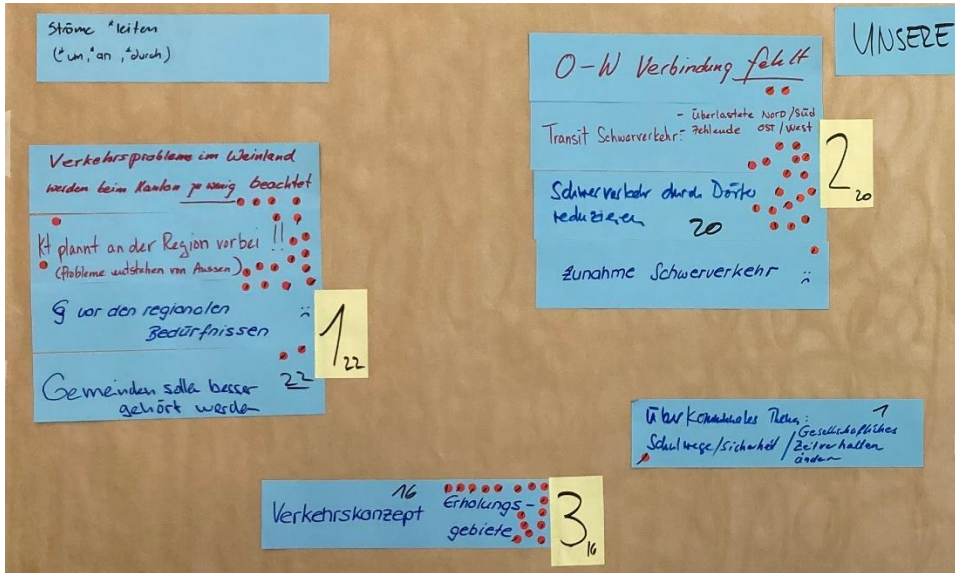 Ströme *leiten
(*um, *an, *durch)
UNSERE
O-W Verbindung fehlt
Transit Schwerverkehr: - überlastete Nord/Süd
- Fehlende Ost/West
Schwerverkehr durch Dörfer
reduzieren
20
Zunahme Schwerverkehr :(
2
20
Verkehrsprobleme im Weinland
werden beim Kanton zu wenig beachtet
Kt plannt an der Region vorbei !!
(Probleme entstehen von Aussen)
§ vor den regionalen
Bedürfnissen :(
22
Gemeinden sollen besser
gehört werden
1
22
Überkommunales Thema: 1
Schulwege/Sicherheit / Gesellschaftliches
Zeitverhalten
ändern
16
Verkehrskonzept Erholungs-
gebiete
3
16